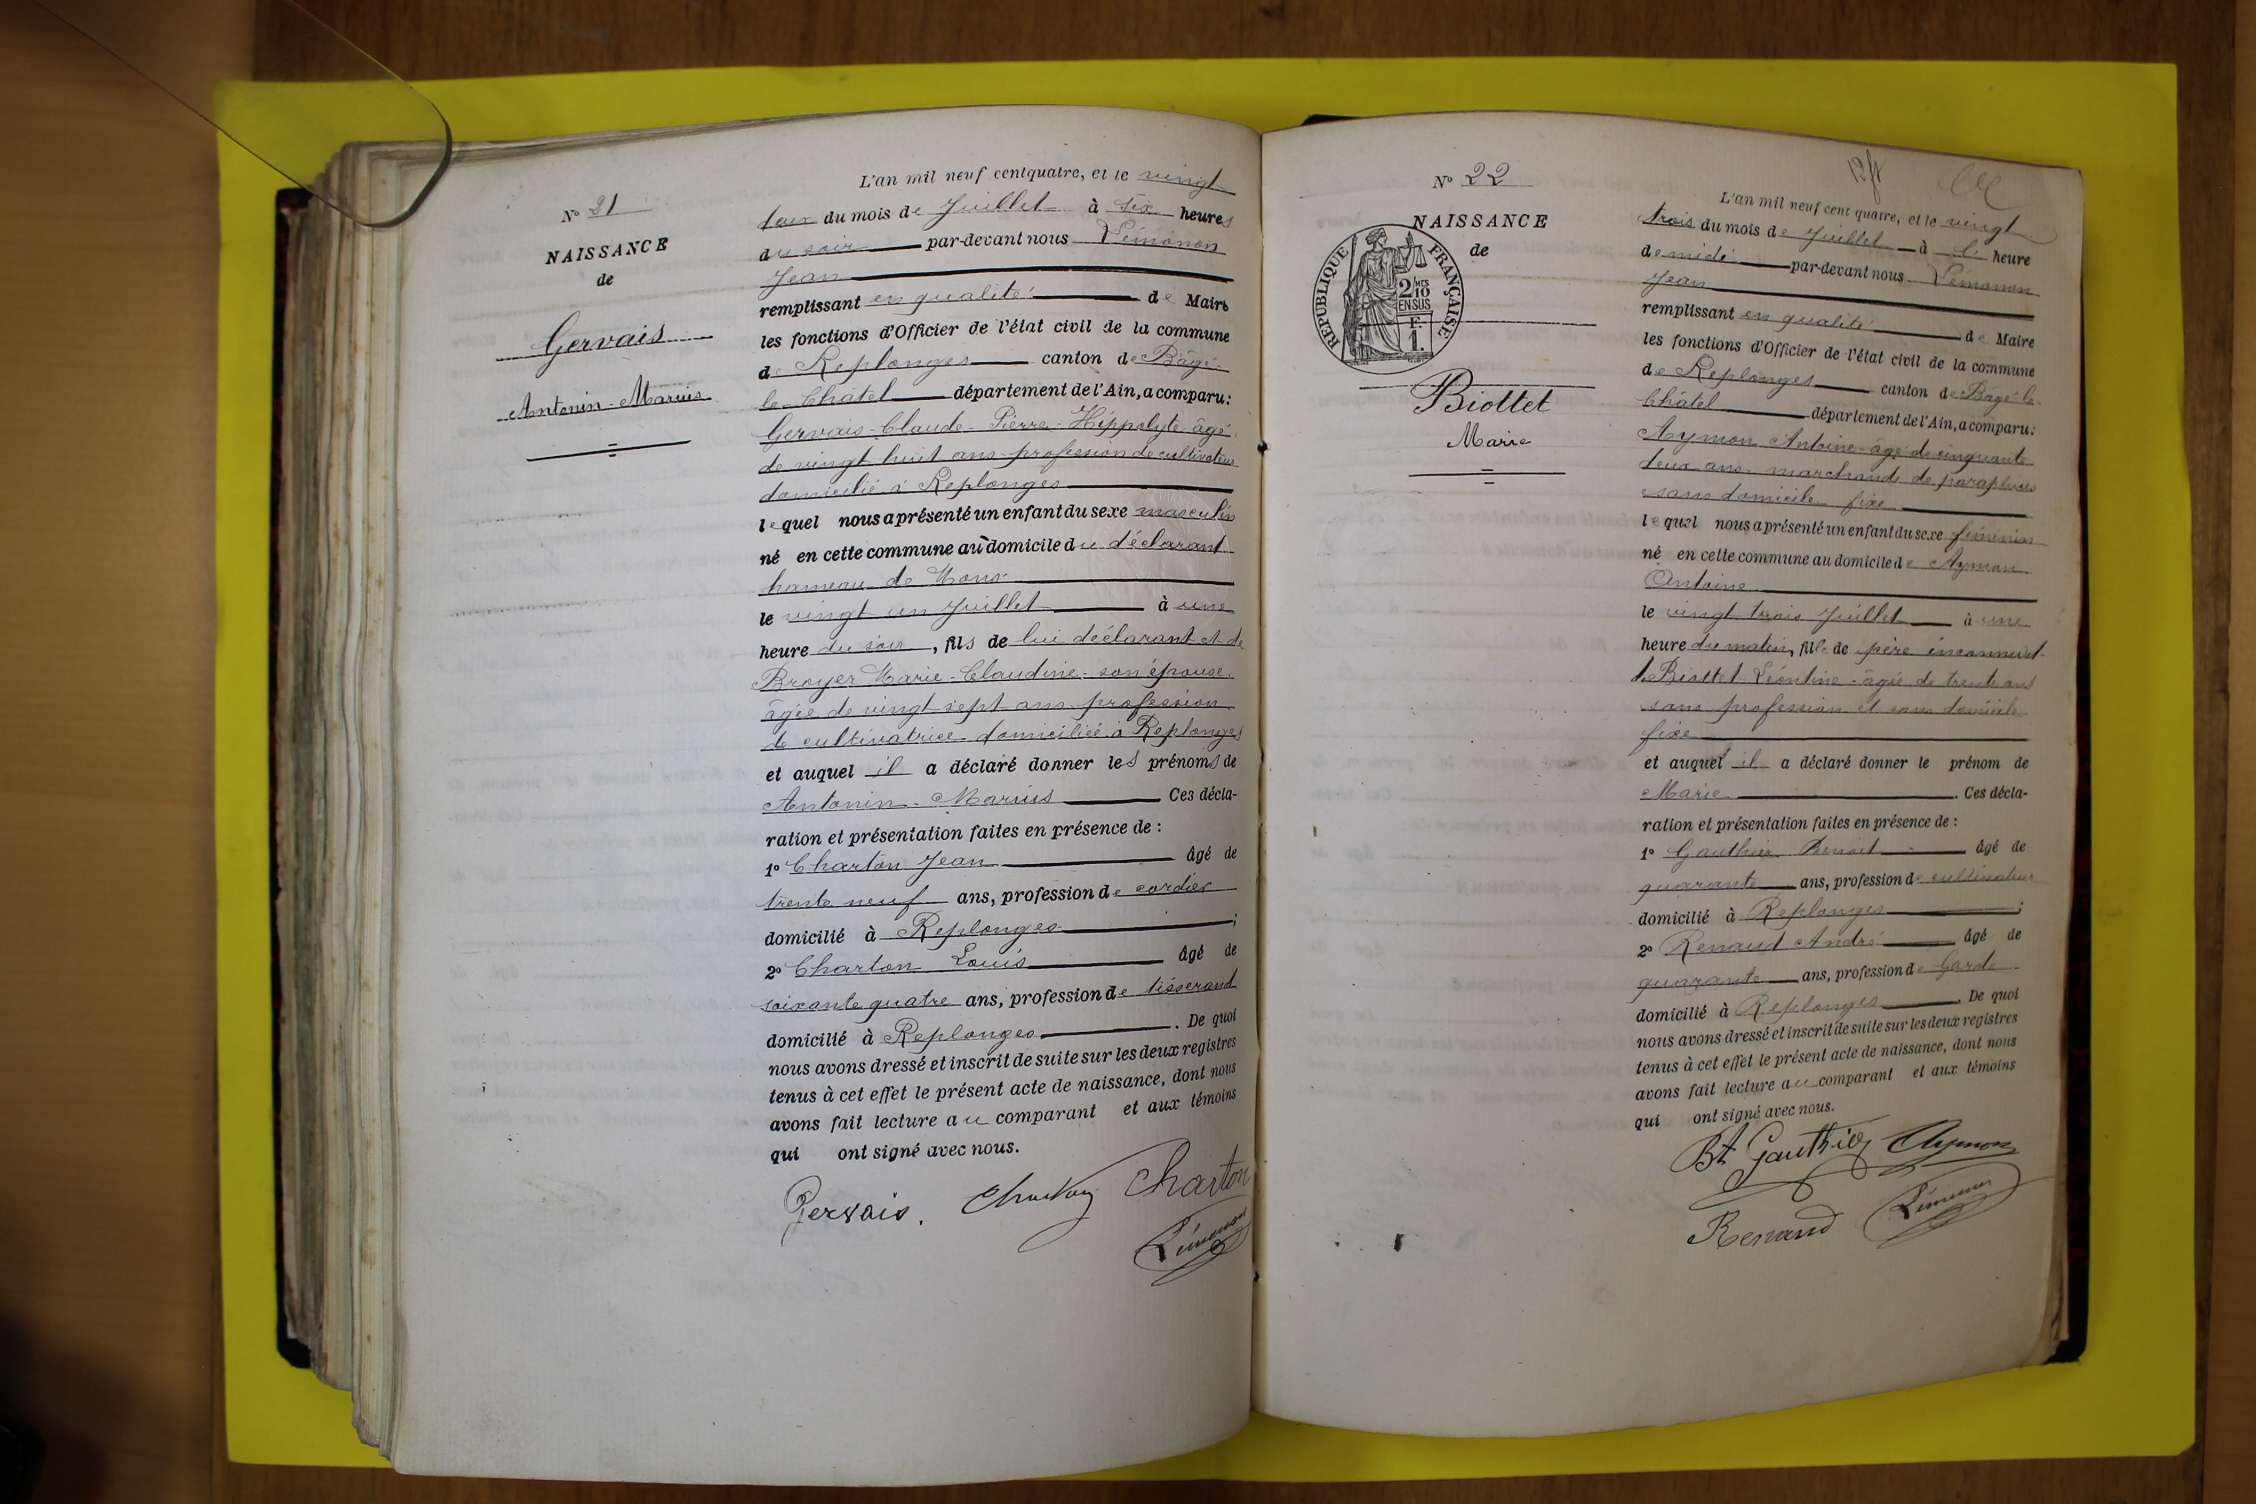 N° 21
NAISSANCE
de
Gervais
Antonin-Marius
L'an mil neuf cent quatre, et le vingt
deux du mois de Juillet à six heures
du soir par-devant nous Lémonon
Jean
remplissant en qualité de Maire
les fonctions d'Officier de l'état civil de la commune
de Replonges canton de Bâgé-
le-Châtel département de l'Ain, a comparu:
Gervais-Claude-Pierre-Hippolyte âgé
de vingt huit ans profession de cultivateur
domicilié à Replonges
lequel nous a présenté un enfant du sexe masculin
né en cette commune au domicile du déclarant
hameau de Mons
le vingt un Juillet à une
heure du soir, fils de lui déclarant et de
Broyer Marie-Claudine son épouse
âgée de vingt sept ans profession
de cultivatrice domiciliée à Replonges
et auquel il a déclaré donner les prénoms de
Antonin-Marius Ces décla-
ration et présentation faites en présence de :
1° Charton Jean âgé de
trente neuf ans, profession de cordier
domicilié à Replonges ;
2° Charton Louis âgé de
soixante quatre ans, profession de tisserand
domicilié à Replonges . De quoi
nous avons dressé et inscrit de suite sur les deux registres
tenus à cet effet le présent acte de naissance, dont nous
avons fait lecture au comparant et aux témoins
qui ont signé avec nous.
Gervais. Charton Charton
Lémonon
N° 22
NAISSANCE
de
RÉPUBLIQUE FRANÇAISE
2/10 MES
EN SUS
F.
1.
Biottet
Marie
L'an mil neuf cent quatre, et le vingt
trois du mois de Juillet à heure
de midi par-devant nous Lémonon
Jean
remplissant en qualité de Maire
les fonctions d'Officier de l'état civil de la commune
de Replonges canton de Bâgé-le-
Châtel département de l'Ain, a comparu:
Aymon Antoine âgé de cinquante
deux ans marchand de parapluies
sans domicile fixe
lequel nous a présenté un enfant du sexe féminin
né en cette commune au domicile de Aymon
Antoine
le vingt trois Juillet à une
heure du matin, fille de père inconnu et
de Biottet Léontine âgée de trente ans
sans profession et sans domicile
fixe
et auquel il a déclaré donner le prénom de
Marie . Ces décla-
ration et présentation faites en présence de :
1° Gauthier Benoit âgé de
quarante ans, profession de cultivateur
domicilié à Replonges ;
2° Renaud André âgé de
quarante ans, profession de Garde
domicilié à Replonges . De quoi
nous avons dressé et inscrit de suite sur les deux registres
tenus à cet effet le présent acte de naissance, dont nous
avons fait lecture au comparant et aux témoins
qui ont signé avec nous.
Bt Gauthier Aymon
Renaud Lémonon